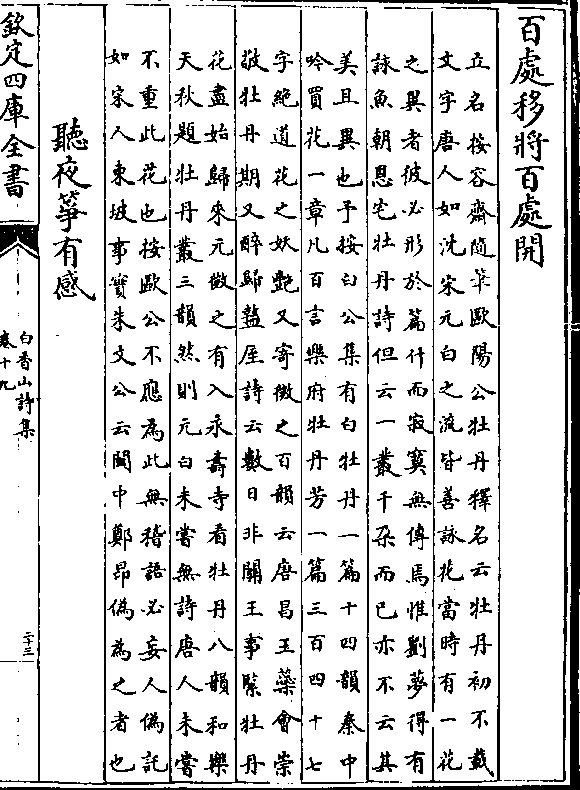 百處移將百處開
立名按容齋隨筆歐陽公牡丹釋名云牡丹初不載
文字唐人如沈宋元白之流皆善詠花當時有一花
之異者彼必形於篇什而寂寞無傳焉惟劉夢得有
詠魚朝恩宅牡丹詩但云一叢千朶而已亦不云其
美且異也予按白公集有白牡丹一篇十四韻秦中
吟買花一章凡百言樂府牡丹芳一篇三百四十七
字絶道花之妖艷又寄微之百韻云唐昌玉蘂會崇
敬牡丹期又醉歸盩厔詩云數日非關王事繫牡丹
花盡始歸來元微之有入永壽寺看牡丹八韻和樂
天秋題牡丹叢三韻然則元白未嘗無詩唐人未嘗
不重此花也按歐公不應為此無稽語必妄人偽託
如宋人東坡事實朱文公云閩中鄭昂偽為之者也
聽夜箏有感
欽定四庫全書
白香山詩集
卷十九
二十三